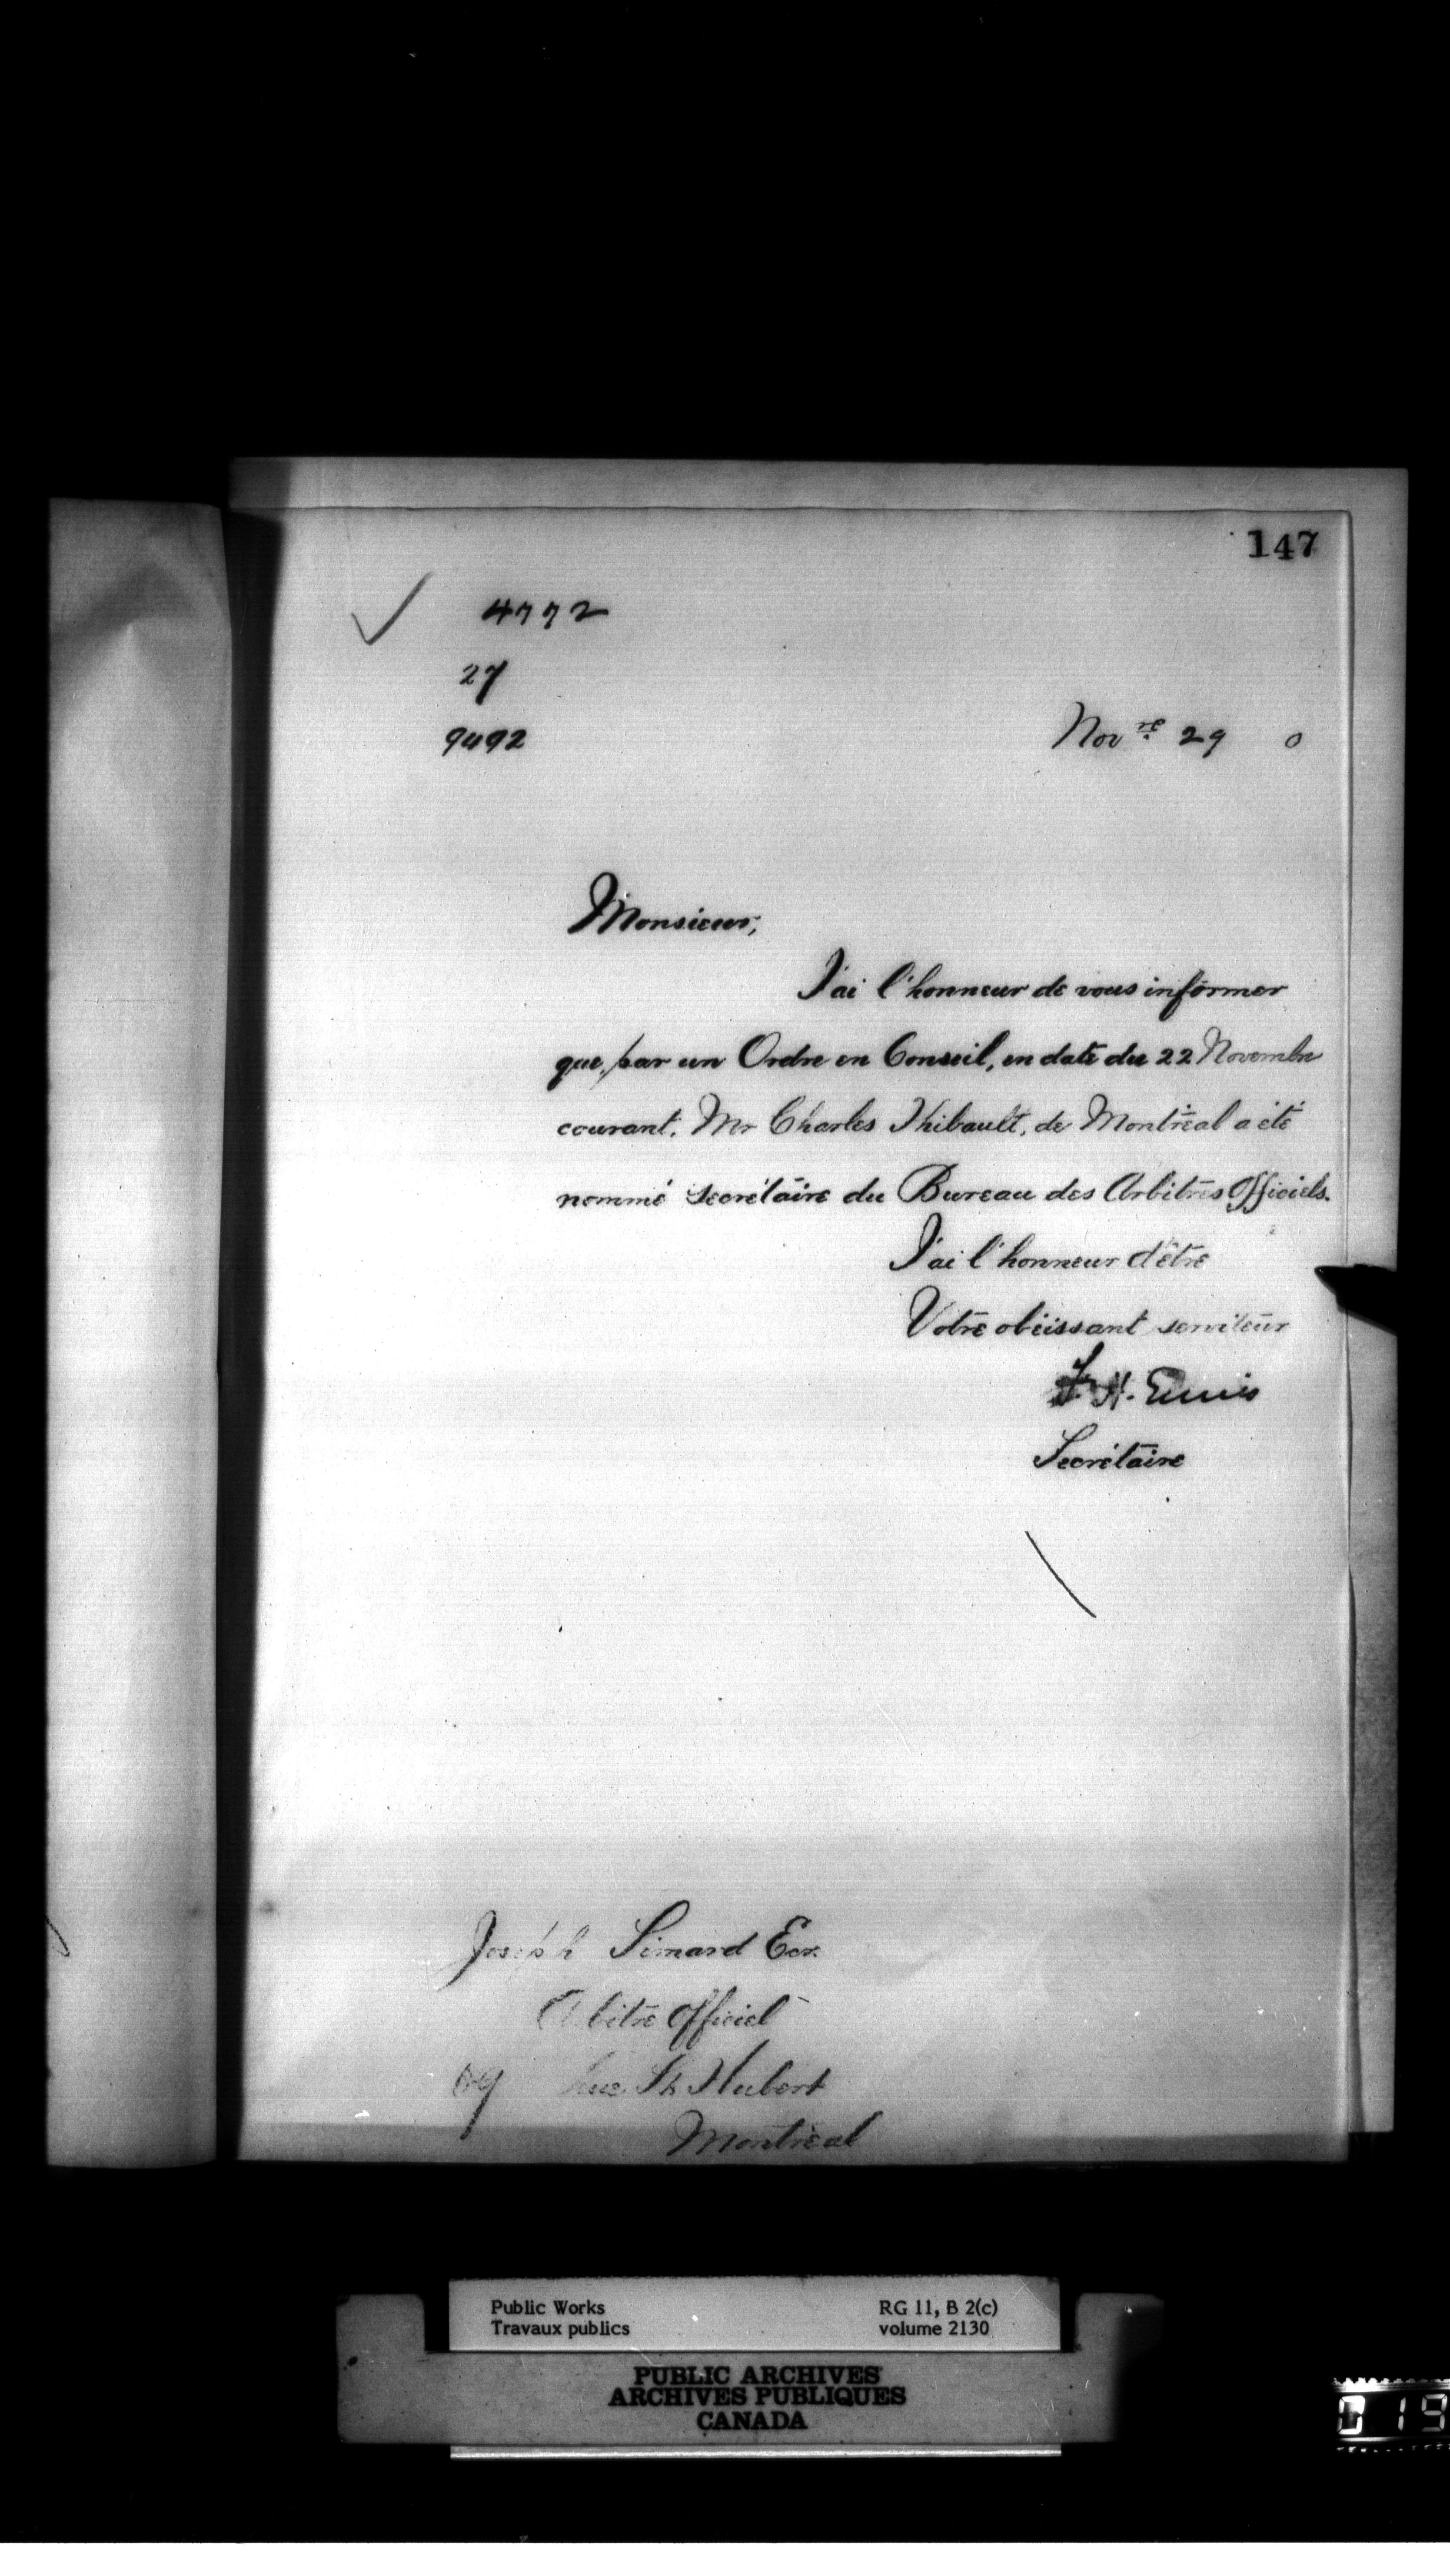 147
4772
27
9492
Nov re 29 0
Monsieur,
J'ai l'honneur de vous informer
que, par un Ordre en Conseil, en date du 22 Novembre
courant, Mr Charles Thibault, de Montréal a été
nommé secrétaire du Bureau des Arbitres Officiels.
J'ai l'honneur d'être
Votre obéissant serviteur
F. H. Ennis
Secrétaire
Joseph Simard Ecr.
A bitre Officiel
rue St Hubert
Montréal
Public Works
Travaux publics
RG 11, B 2(c)
volume 2130
PUBLIC ARCHIVES
ARCHIVES PUBLIQUES
CANADA
019